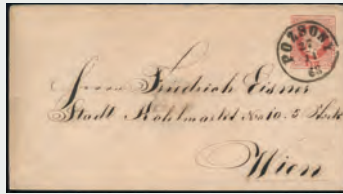 POZSONY
Herrn Friedrich Eisner
Stadt Kohlmarkt No 10. 2 Stock
Wien